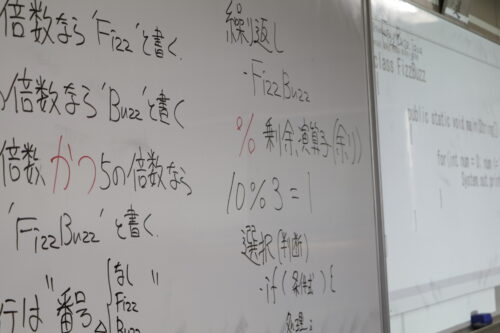 倍数なら'Fizz'と書く.
の倍数なら'Buzz'と書く
倍数 かつ5の倍数なら
'FizzBuzz'と書く.
行は"番号 なし "
Fizz
Buzz
繰り返し
・FizzBuzz
% 乗除演算子(余り)
10%3=1
選択(判断)
・if(条件式){
処理
class FizzBuzz
public static void main(String
for(int num = 0; num
System.out.print